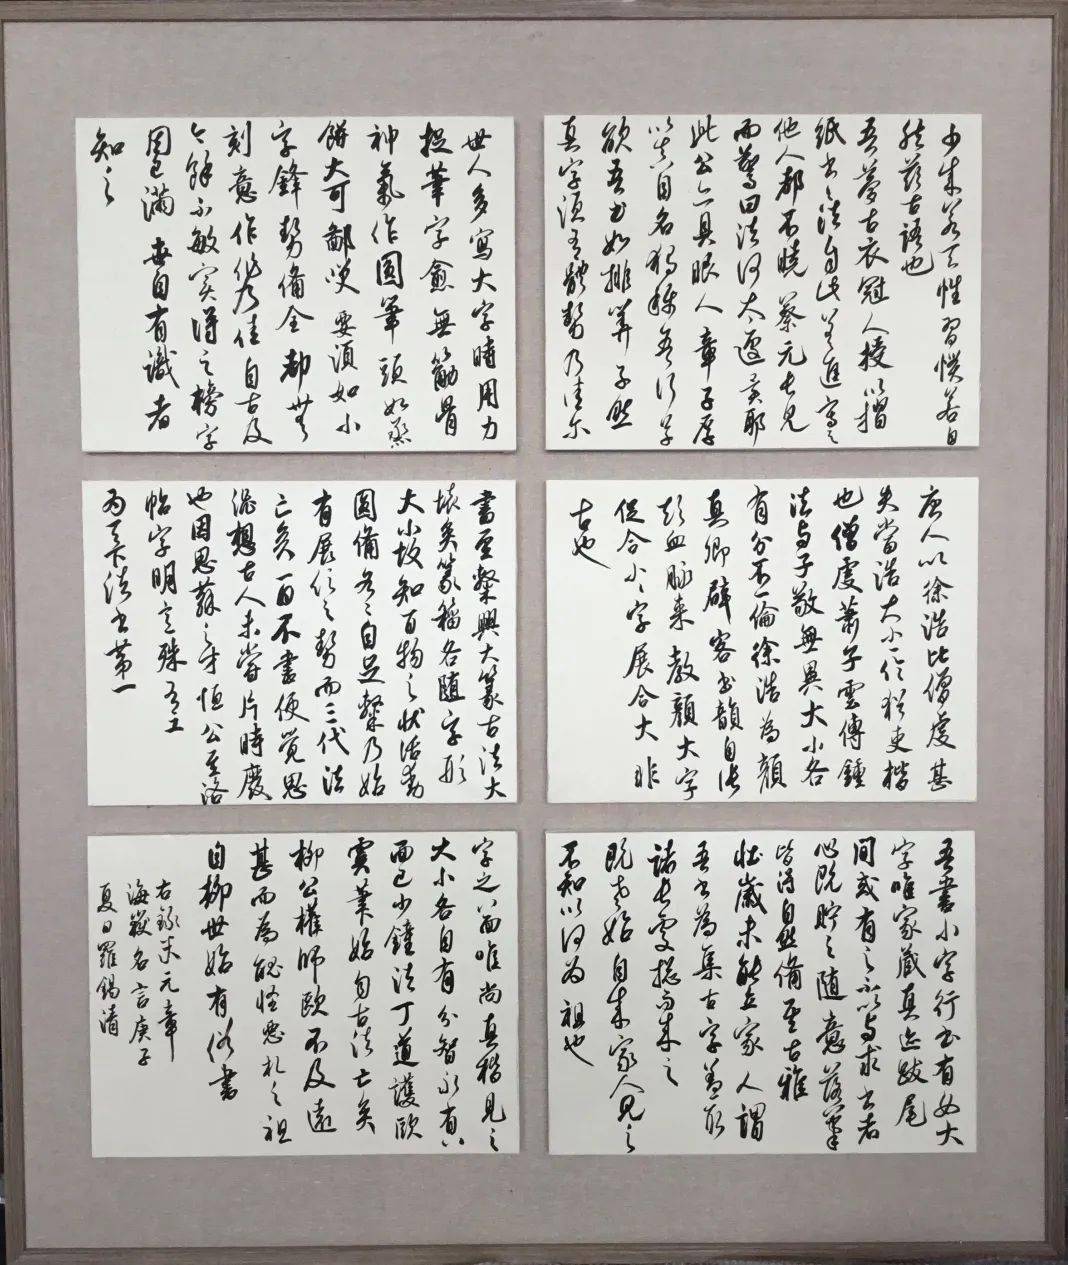 少成若天性習慣若自
然茲古語也
吾夢古衣冠人授以摺
紙書書法自此差進寫之
他人都不曉蔡元長見
而驚曰法何太遽異耶
此公亦具眼人章子厚
以真自名獨稱吾行草
欲吾書如排筭子然
真字須有體勢乃佳尔
世人多寫大字時用力
捉筆字愈無筋骨
神氣作圓筆頭如蒸
餅大可鄙笑要須如小
字鋒勢備全都無
刻意作乃佳自古及
今餘不敏實得之榜字
固已滿世自有識者
知之
唐人以徐浩比僧虔甚
失當浩大小一倫猶吏楷
也僧虔蕭子雲傳鍾
法與子敬無異大小各
有分不一倫徐浩為顏
真卿辟客書韻自張
顛血脈來教顏大字
促令小小字展令大非
古也
書至隸興大篆古法大
壞矣篆籀各隨字形
大小故知百物之狀活動
圓備各各自足隸乃始
有展促之勢而三代法
亡矣一日不書便覺思
澀想古人未嘗片時廢
也因思蘇之才恒公至洛
帖字明意殊有工
為天下法書第一
吾書小字行書有如大
字唯家藏真跡跋尾
間或有之不以與求書者
心既貯之隨意落筆
皆得自然備其古雅
壯歲未能立家人謂
吾書為集古字蓋取
諸長處總而成之
既老始自成家人見之
不知以何為祖也
字之八面唯尚真楷見之
大小各自有分智永有八
面已少鍾法丁道護歐
虞筆始勻古法亡矣
柳公權師歐不及遠
甚而為醜怪惡札之祖
自柳世始有俗書
右錄米元章
海嶽名言庚子
夏日羅錫清